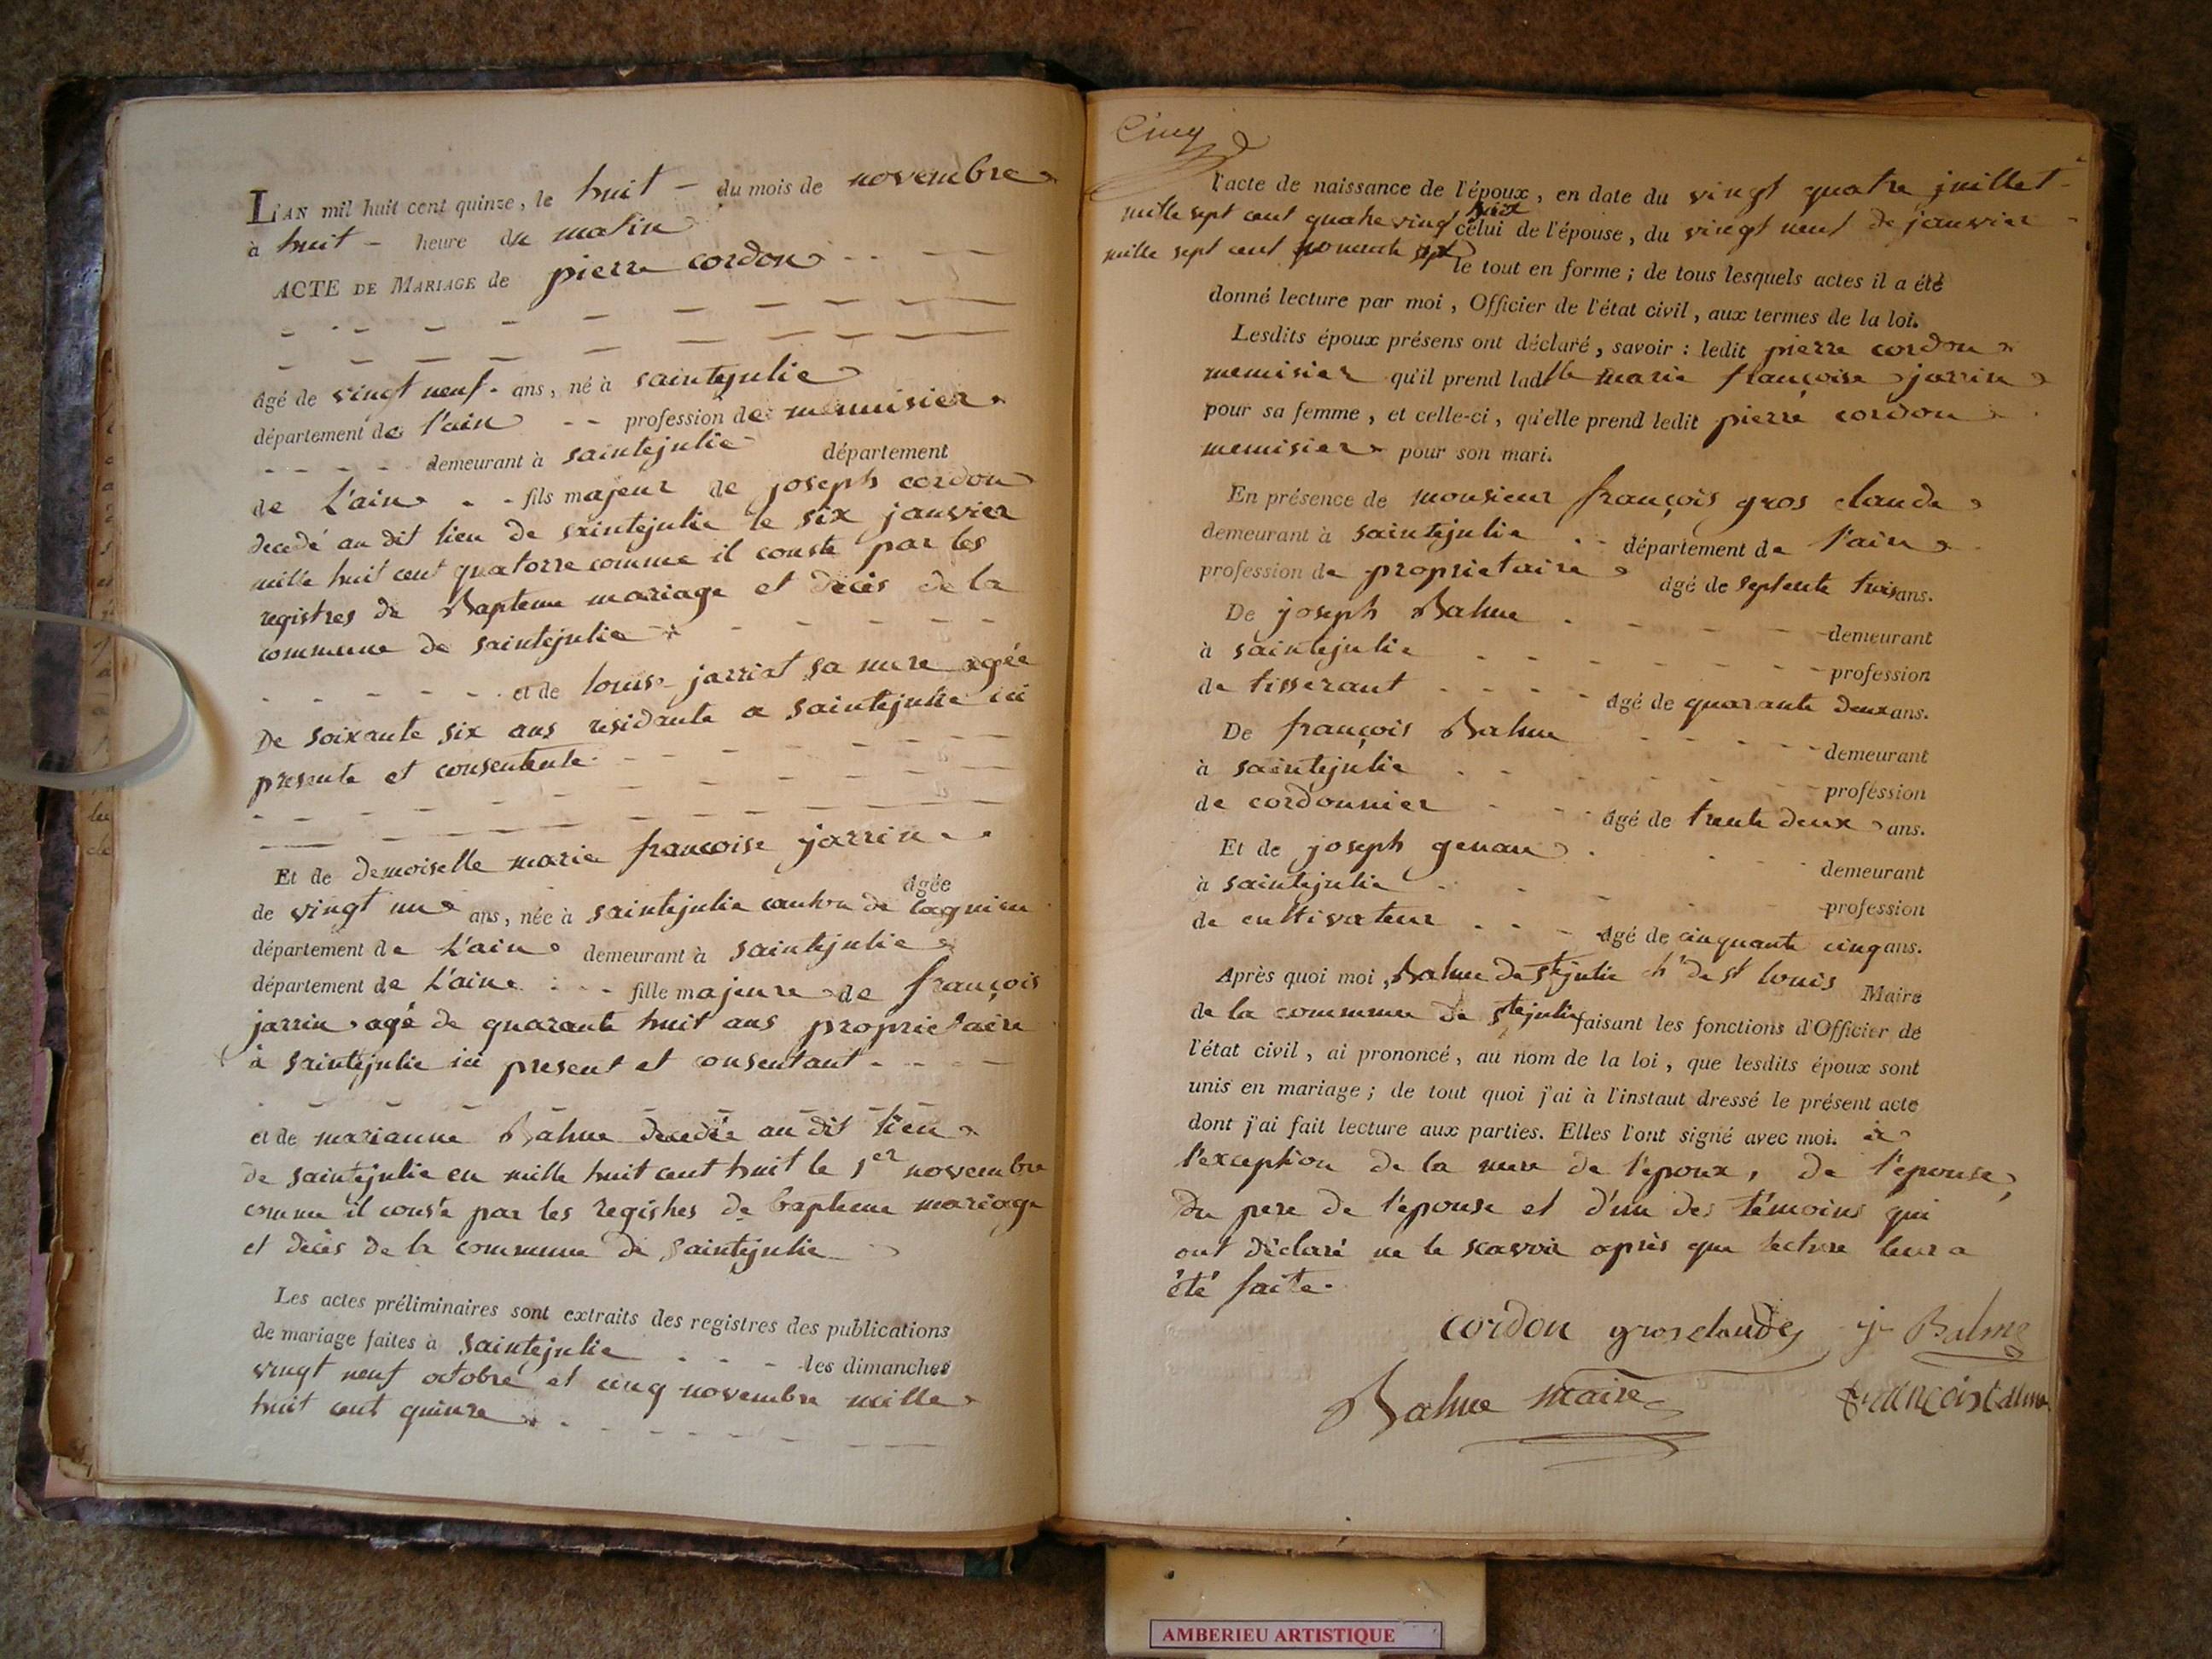 L'AN mil huit cent quinze, le huit du mois de novembre
à huit heure du matin
ACTE DE MARIAGE de pierre cordon
âgé de vingt neuf ans, né à saintejulie
département de l'ain profession de menuisier
demeurant à saintejulie département
de L'ain fils majeur de joseph cordon
decedé au dit lieu de saintejulie le six janvier
mille huit cent quatorze comme il conste par les
registres de Bapteme mariage et décès de la
commune de saintejulie
et de louise jarriat sa mere agée
De soixante six ans residante a saintejulie ici
presente et consentente
Et de demoiselle marie francoise jarrin
âgée
de vingt un ans, née à saintejulie canton de lagnieu
département de L'ain demeurant à saintejulie
département de L'ain fille majeure de françois
jarrin agé de quarante huit ans proprietaire
à saintejulie ici present et consentant
et de marianne Balme decedée au dit lieu
de saintejulie en mille huit cent huit le 1er novembre
comme il conste par les registres de bapteme mariage
et décès de la commune de saintejulie
Les actes préliminaires sont extraits des registres des publications
de mariage faites à saintejulie les dimanches
vingt neuf octobre et cinq novembre mille
huit cent quinze
Cinq
l'acte de naissance de l'époux, en date du vingt quatre juillet
mille sept cent quatre vingt huit celui de l'épouse, du vingt neuf de janvier
mille sept cent le tout en forme ; de tous lesquels actes il a été
donné lecture par moi, Officier de l'état civil, aux termes de la loi.
Lesdits époux présens ont déclaré, savoir : ledit pierre cordon
menuisier qu'il prend ladtte marie françoise jarrin
pour sa femme, et celle-ci, qu'elle prend ledit pierre cordon
menuisier pour son mari.
En présence de monsieur françois gros claude
demeurant à saintejulie département de l'ain
profession de proprietaire âgé de septente trois ans.
De joseph Balme demeurant
à saintejulie profession
de tisserant âgé de quarante deux ans.
De françois Balme demeurant
à saintejulie profession
de cordonnier âgé de trente deux ans.
Et de joseph genau demeurant
à saintejulie profession
de cultivateur âgé de cinquante cinq ans.
Après quoi moi, Balme de Ste julie chr de st louis Maire
de la commune de ste julie faisant les fonctions d'Officier de
l'état civil, ai prononcé, au nom de la loi, que lesdits époux sont
unis en mariage ; de tout quoi j'ai à l'instaut dressé le présent acte
dont j'ai fait lecture aux parties. Elles l'ont signé avec moi. à
l'exception de la mere de l'époux, de l'épouse,
du pere de l'épouse et d'un des témoins qui
ont déclaré ne le scavoir après que lecture leur a
été faite.
cordon grosclaude j Balme
Balme maire françois balme
AMBERIEU ARTISTIQUE